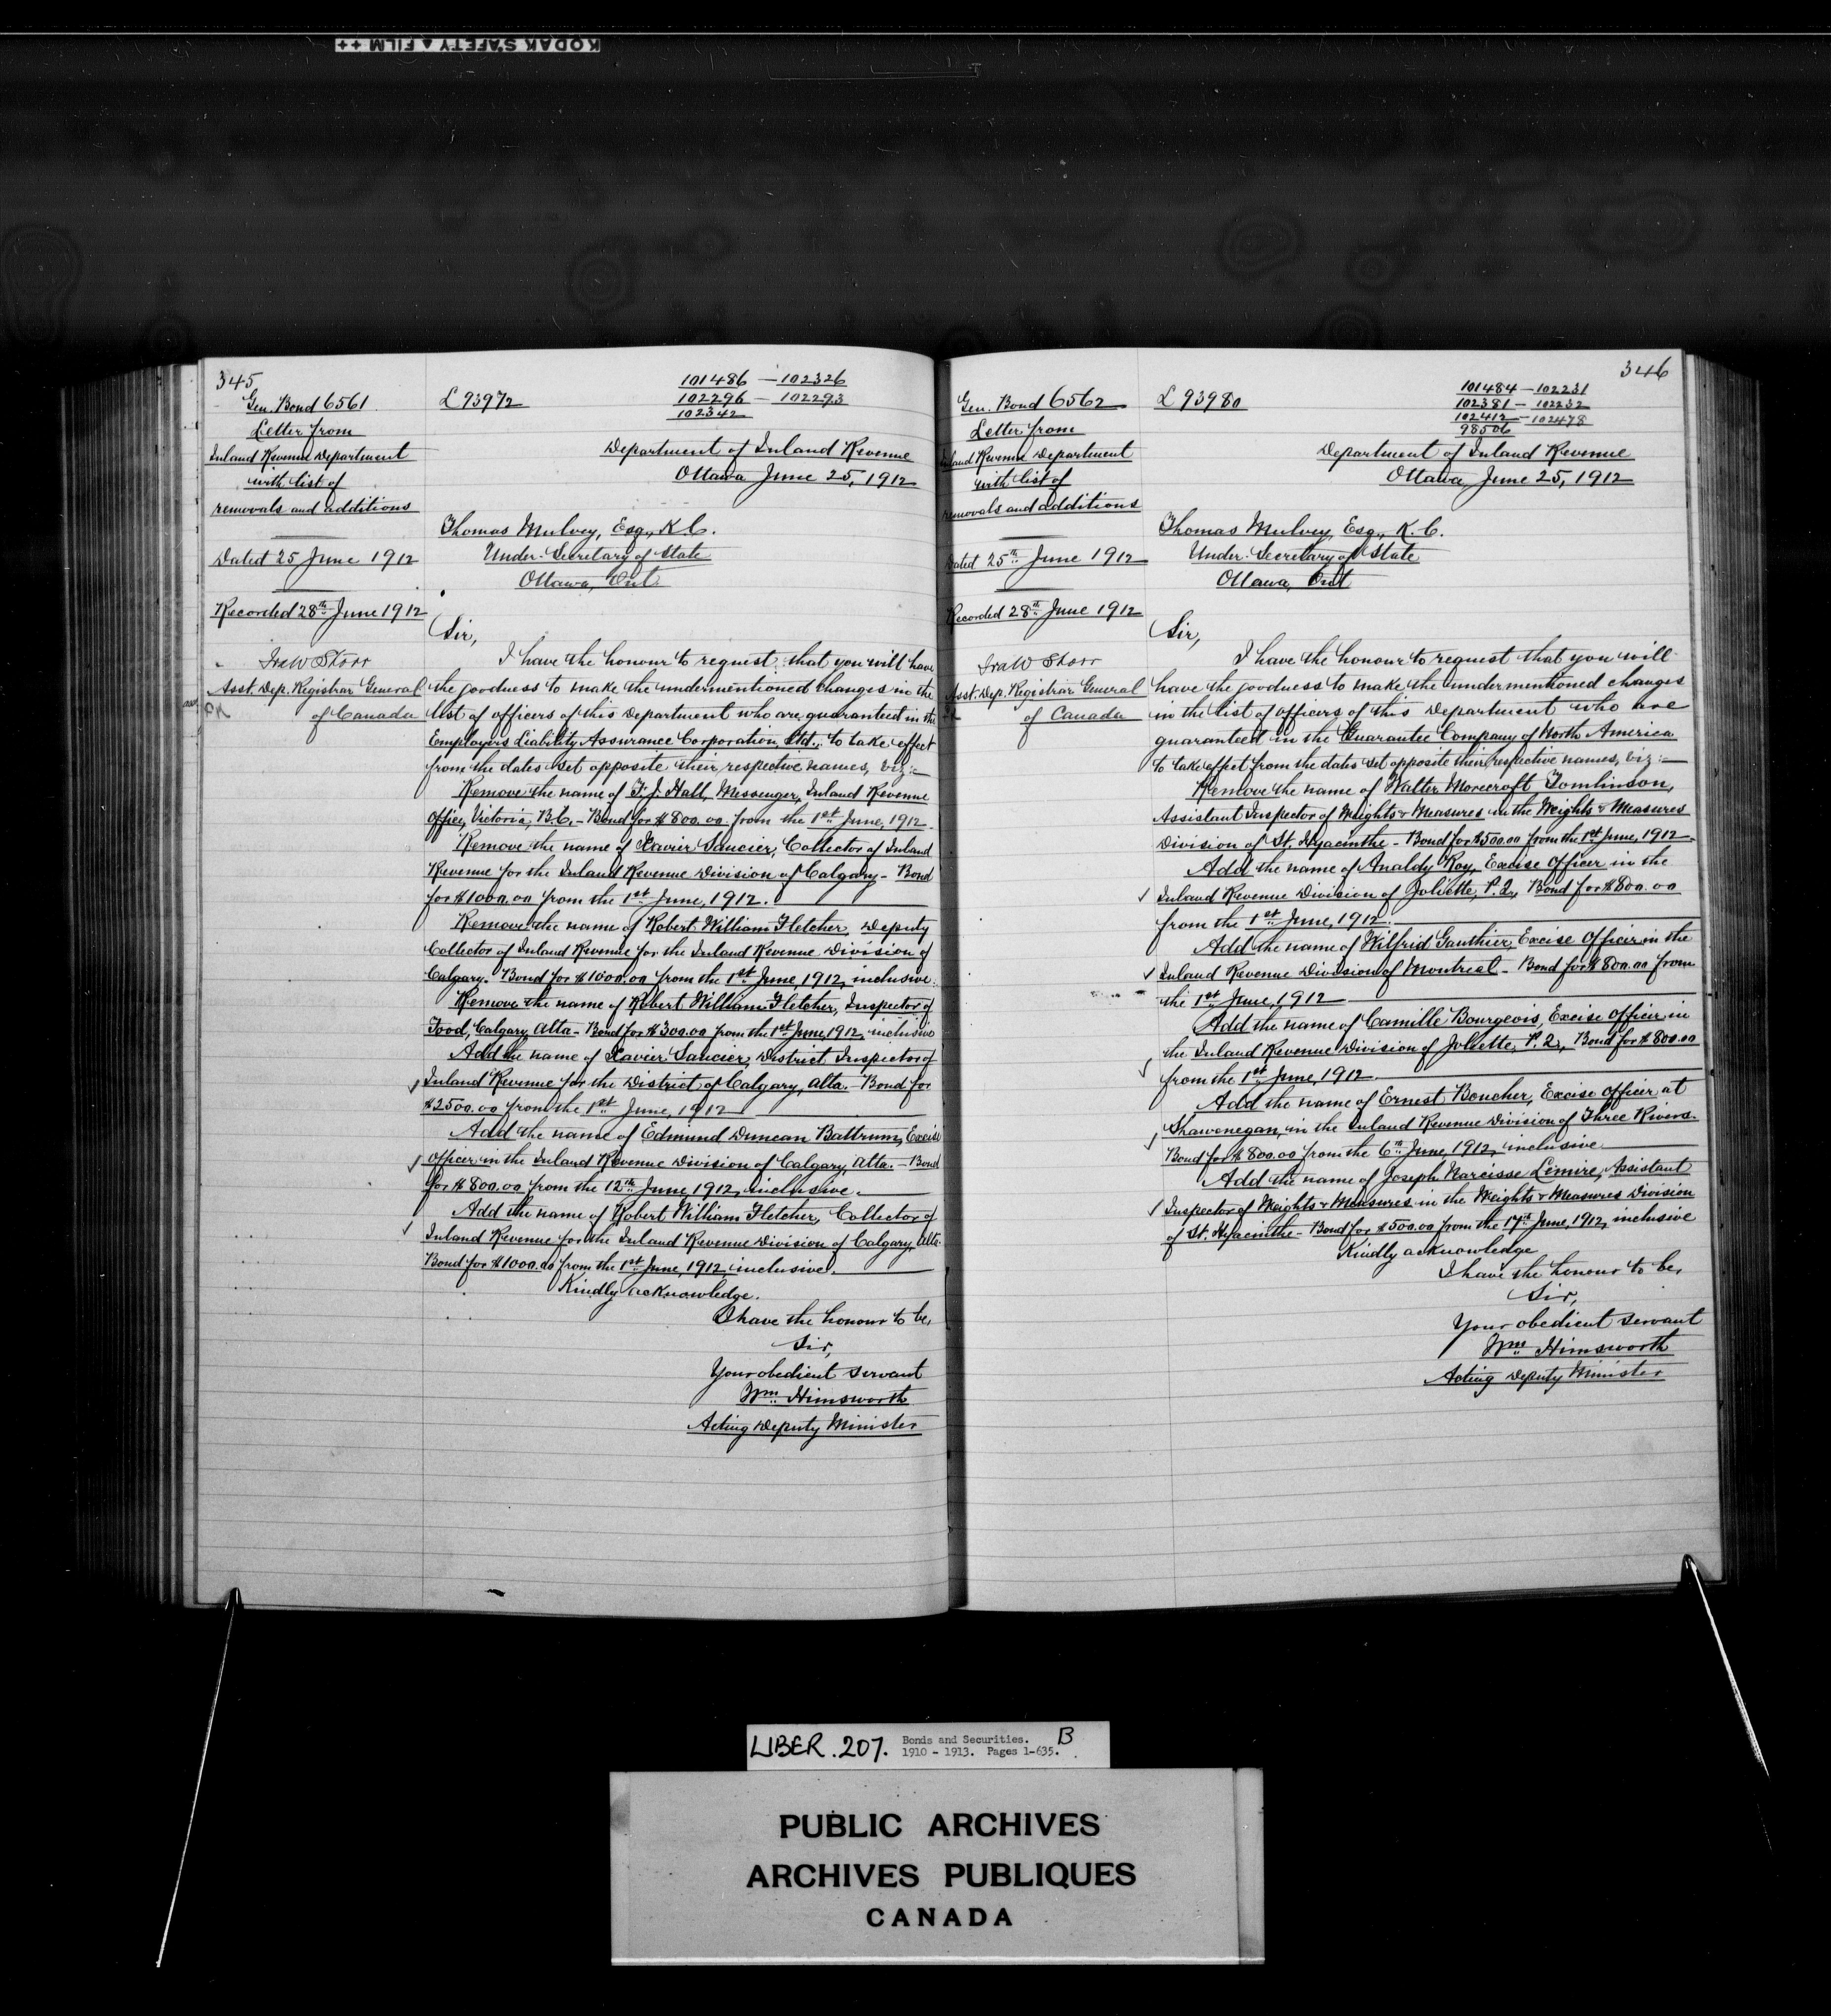 KODAK SAFETY FILM ++
345
Gen. Bond 6561
Letter from
Inland Revenue Department
with list of
removals and additions
Dated 25 June 1912
Recorded 28th June 1912
Ira W Storr
Asst. Dep. Registrar General
of Canada
L 93972
101486 — 102326
102296 — 102293
102342
Department of Inland Revenue
Ottawa June 25, 1912
Thomas Mulvey, Esq., K.C.
Under-Secretary of State
Ottawa, Ont
Sir,
I have the honour to request that you will have
the goodness to make the undermentioned changes in the
list of officers of this Department who are guaranteed in the
Employers Liability Assurance Corporation, Ltd., to take effect
from the dates set opposite their respective names, viz:—
Remove the name of F. J. Hall, Messenger, Inland Revenue
Office, Victoria, B.C. - Bond for $800.00 from the 1st June, 1912.
Remove the name of Xavier Saucier, Collector of Inland
Revenue for the Inland Revenue Division of Calgary - Bond
for $1000.00 from the 1st June, 1912.
Remove the name of Robert William Fletcher, Deputy
Collector of Inland Revenue for the Inland Revenue Division of
Calgary. Bond for $1000.00 from the 1st June, 1912, inclusive.
Remove the name of Robert William Fletcher, Inspector of
Food, Calgary, Alta - Bond for $300.00 from the 1st June, 1912, inclusive
Add the name of Xavier Saucier, District Inspector of
Inland Revenue for the District of Calgary, Alta. - Bond for
$2500.00 from the 1st June, 1912
Add the name of Edmund Duncan Battrum, Excise
Officer in the Inland Revenue Division of Calgary, Alta. - Bond
for $800.00 from the 12th June, 1912, inclusive.
Add the name of Robert William Fletcher, Collector of
Inland Revenue for the Inland Revenue Division of Calgary, Alta.
Bond for $1000.00 from the 1st June, 1912 inclusive.
Kindly acknowledge.
I have the honour to be,
Sir,
Your obedient servant
Wm Himsworth
Acting Deputy Minister
346
Gen. Bond 6562
Letter from
Inland Revenue Department
with list of
removals and additions
Dated 25th June 1912
Recorded 28th June 1912
Ira W Storr
Asst. Dep. Registrar General
of Canada
L 93980
101484 — 102231
102381 — 102232
102412 — 102478
98506
Department of Inland Revenue
Ottawa, June 25, 1912
Thomas Mulvey, Esq., K.C.
Under-Secretary of State
Ottawa, Ont
Sir,
I have the honour to request that you will
have the goodness to make the undermentioned changes
in the list of officers of this Department who are
guaranteed in the Guarantee Company of North America
to take effect from the dates set opposite their respective names, viz:—
Remove the name of Walter Morecroft Tomlinson,
Assistant Inspector of Weights & Measures in the Weights & Measures
Division of St. Hyacinthe - Bond for $500.00 from the 1st June, 1912
Add the name of Analdy Roy, Excise Officer in the
Inland Revenue Division of Joliette, P.Q., Bond for $800.00
from the 1st June, 1912.
Add the name of Wilfrid Gauthier, Excise Officer in the
Inland Revenue Division of Montreal - Bond for $800.00 from
the 1st June, 1912
Add the name of Camille Bourgeois, Excise Officer in
the Inland Revenue Division of Joliette, P.Q., Bond for $800.00
from the 1st June, 1912
Add the name of Ernest Boucher, Excise Officer at
Shawenegan, in the Inland Revenue Division of Three Rivers.
Bond for $800.00 from the 6th June, 1912, inclusive
Add the name of Joseph Narcisse Lemire, Assistant
Inspector of Weights & Measures in the Weights & Measures Division
of St. Hyacinthe - Bond for $500.00 from the 17th June, 1912, inclusive
Kindly acknowledge
I have the honour to be,
Sir,
Your obedient servant
Wm Himsworth
Acting Deputy Minister
LIBER. 207. Bonds and Securities. B
1910 - 1913. Pages 1-635.
PUBLIC ARCHIVES
ARCHIVES PUBLIQUES
CANADA